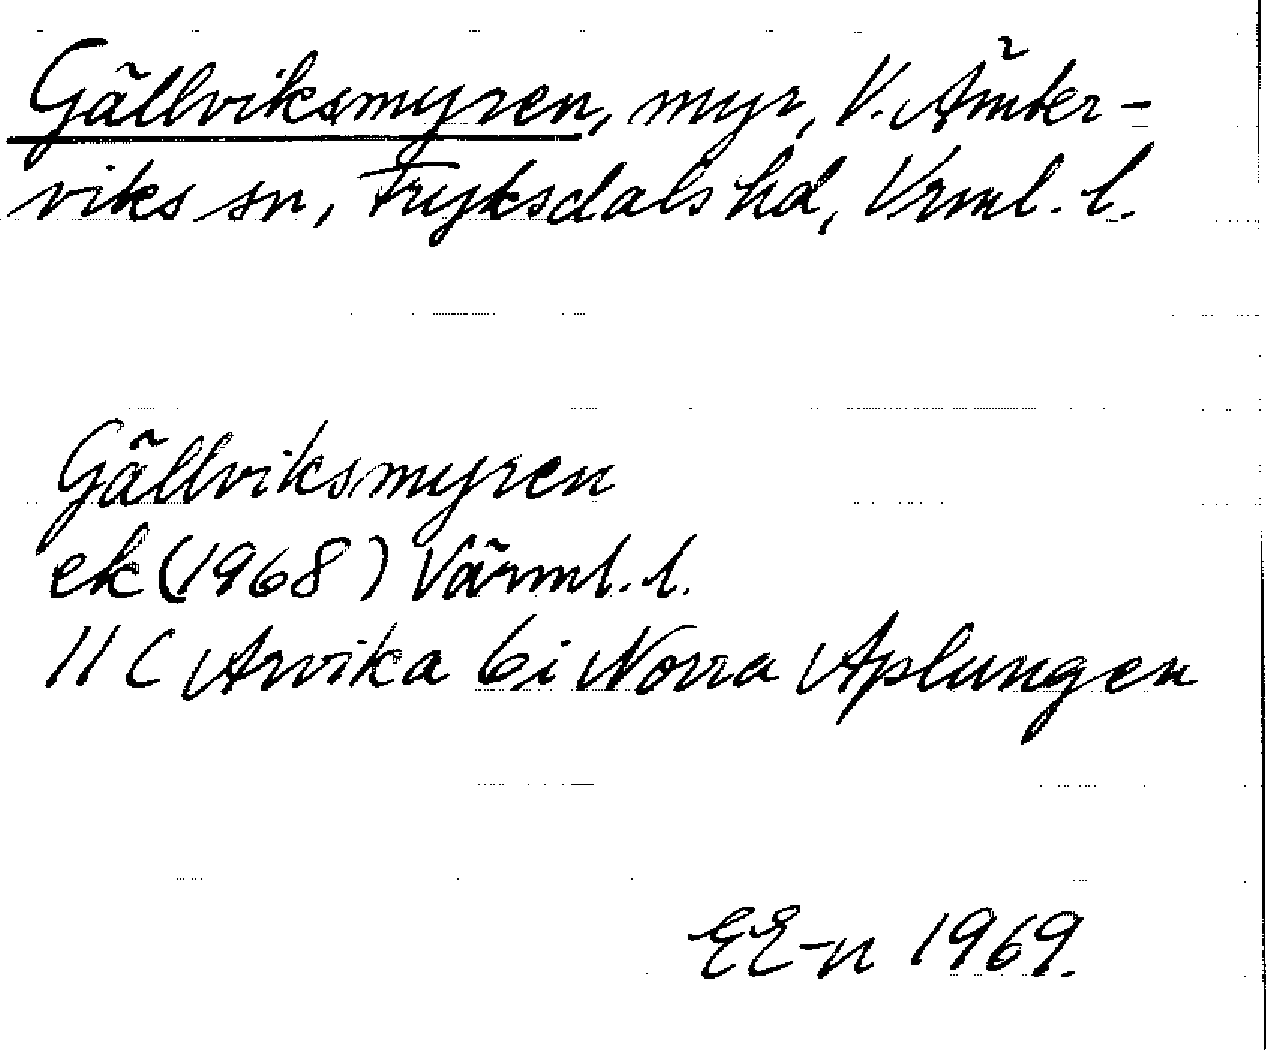 Gällviksmyren, myr, V. Ämter-
viks sn, Fryksdals hd, Vrml. l.
Gällviksmyren
ek (1968) Värml. l.
11 C Arvika 6i Norra Aplungen
EE-n 1969.